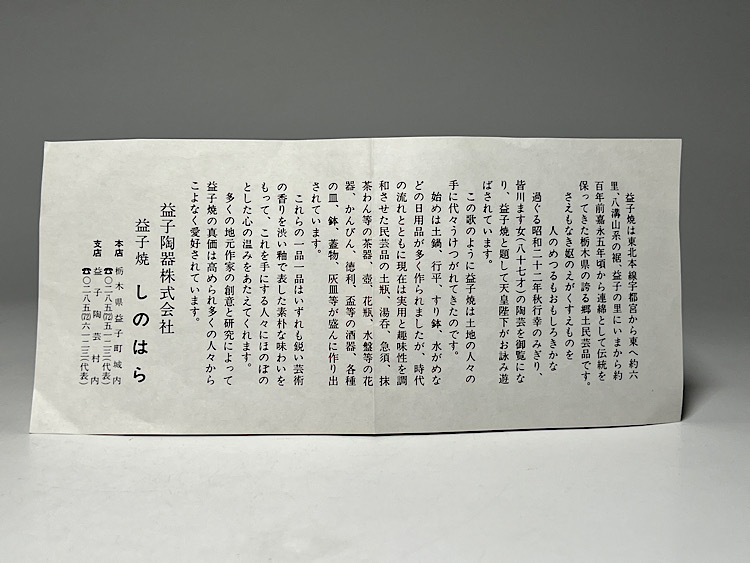 益子焼は東北本線宇都宮から東へ約六
里、八溝山系の裾、益子の里にいまから約
百年前嘉永五年頃から連綿として伝統を
保ってきた栃木県の誇る郷土民芸品です。
さえもなき嫗のえがくすえものを
人のめつるもおもしろきかな
過ぐる昭和二十二年秋行幸のみぎり、
皆川ます女(八十七才)の陶芸を御覧にな
り、益子焼と題して天皇陛下がお詠み遊
ばされています。
この歌のように益子焼は土地の人々の
手に代々うけつがれてきたのです。
始めは土鍋、行平、すり鉢、水がめな
どの日用品が多く作られましたが、時代
の流れとともに現在は実用と趣味性を調
和させた民芸品の土瓶、湯呑、急須、抹
茶わん等の茶器、壺、花瓶、水盤等の花
器、かんびん、徳利、盃等の酒器、各種
の皿、鉢、蓋物、灰皿等が盛んに作り出
されています。
これらの一品一品はいずれも鋭い芸術
の香りを渋い釉で表した素朴な味わいを
もって、これを手にする人々にほのぼの
とした心の温みをあたえてくれます。
多くの地元作家の創意と研究によって
益子焼の真価は高められ多くの人々から
こよなく愛好されています。
益子陶器株式会社
益子焼 しのはら
本店 栃木県益子町城内
☎〇二八五(72)五一二三(代表)
支店 益子陶芸村内
☎〇二八五(72)六一二三(代表)